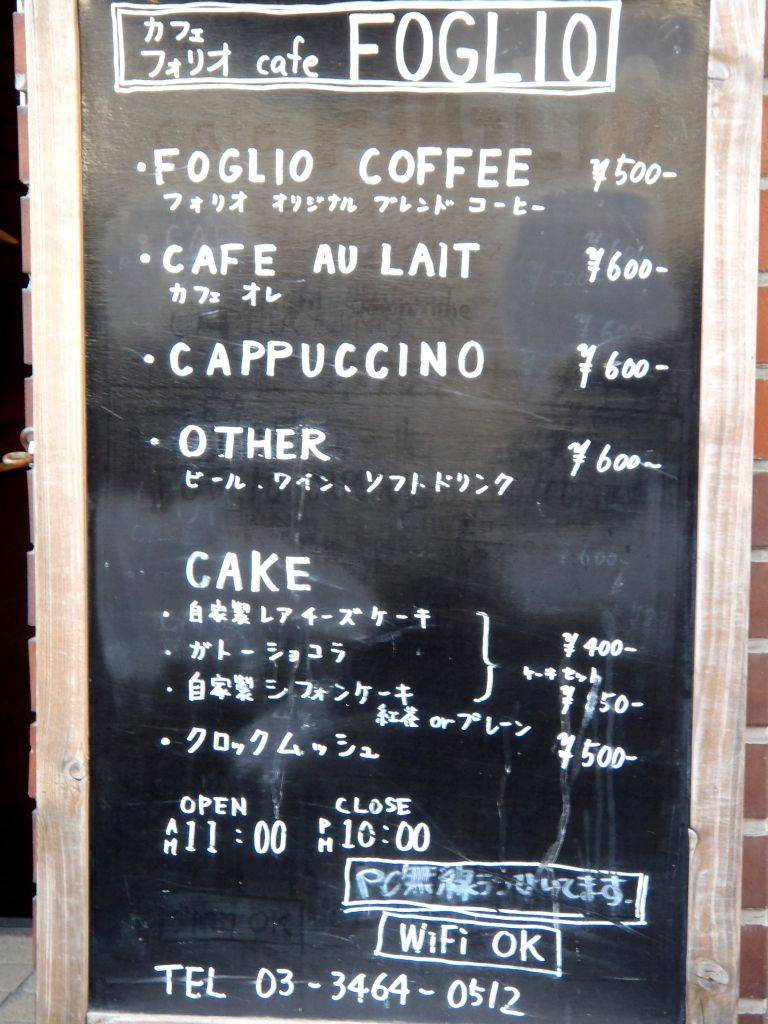 カフェ
フォリオ cafe FOGLIO
・FOGLIO COFFEE ¥500-
フォリオ オリジナル ブレンド コーヒー
・CAFE AU LAIT ¥600-
カフェ オレ
・CAPPUCCINO ¥600-
・OTHER ¥600~
ビール、ワイン、ソフトドリンク
CAKE
・自家製レアチーズケーキ
・ガトーショコラ ¥400-
ケーキセット
・自家製シフォンケーキ
紅茶 or プレーン
・クロックムッシュ ¥500-
OPEN CLOSE
AM 11:00 PM 10:00
PC無線
WiFi OK
TEL 03-3464-0512